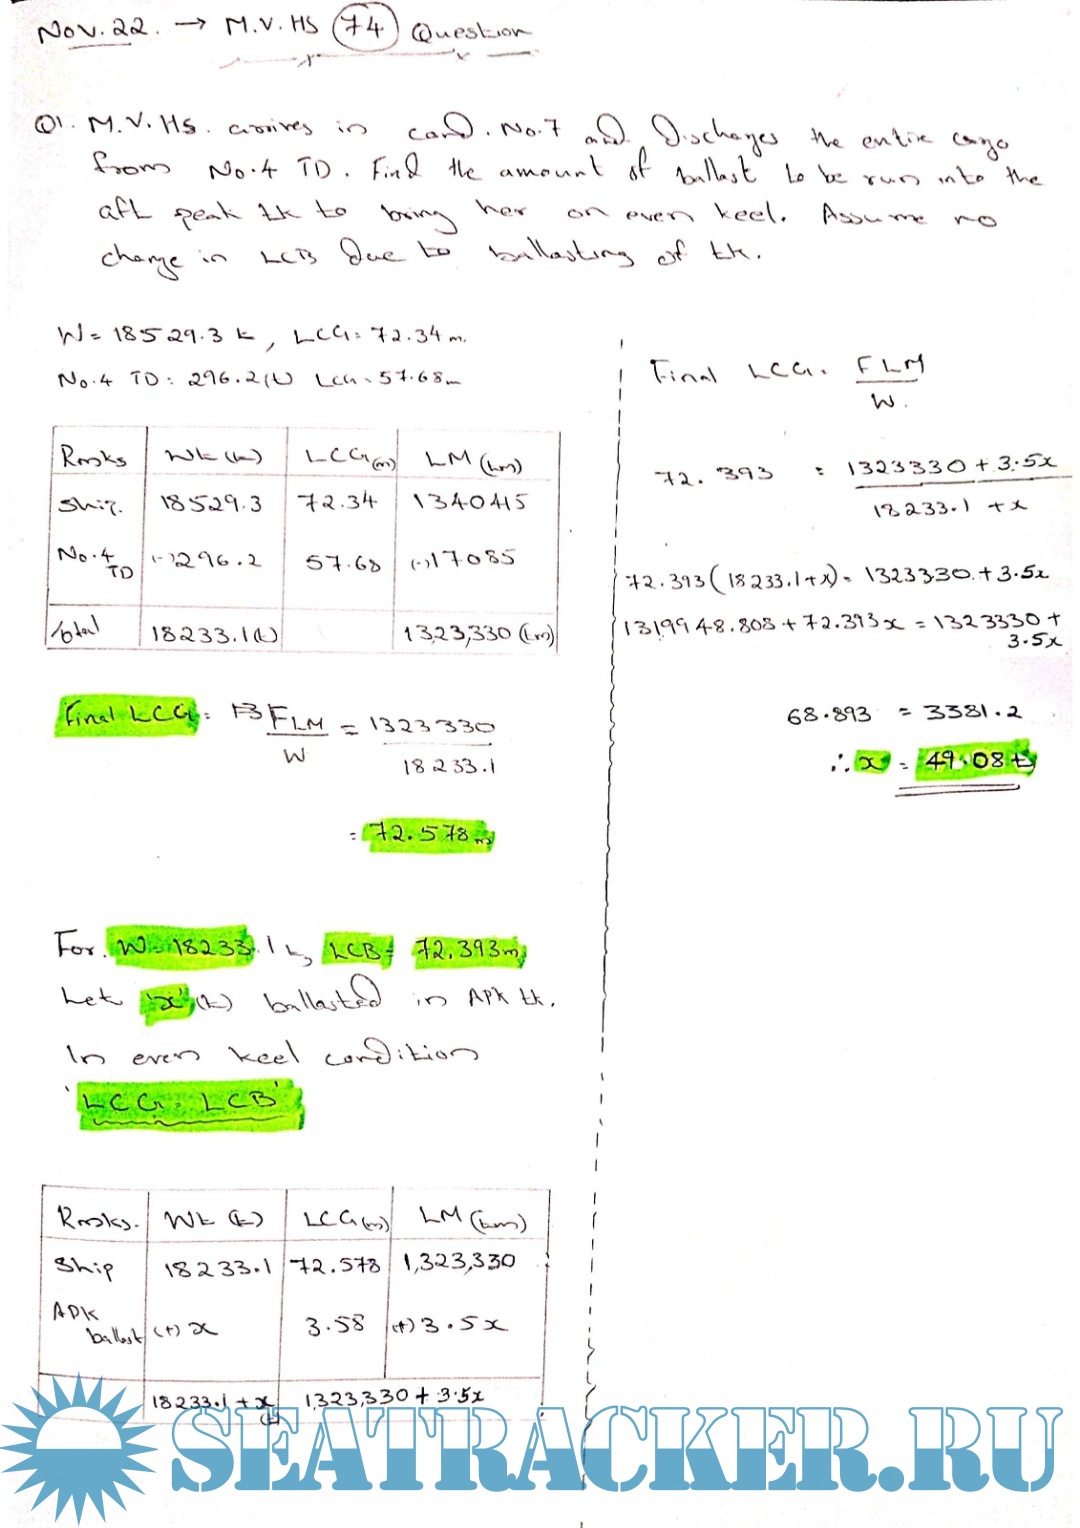 Nov. 22. → M.V. HS 74 Question
Q1. M.V. HS. arrives in cond. No. 7 and Discharges the entire cargo
from No. 4 TD. Find the amount of ballast to be run into the
aft peak tk to bring her on even keel. Assume no
change in LCB Due to ballasting of tk.
W = 18529.3 t, LCG = 72.34 m.
No. 4 TD = 296.2 (t) LCG = 57.68 m
Rmks Wt (t) LCG (m) LM (tm)
Ship. 18529.3 72.34 1340415
No. 4 TD (-) 296.2 57.68 (-) 17085
Total 18233.1 (t) 13,23,330 (tm)
Final LCG = FLM / W = 1323330 / 18233.1
= 72.578 m
For. W = 18233.1 t, LCB = 72.393 m
Let 'x' (t) ballasted in APK tk.
In even keel condition
'LCG = LCB'
Rmks. Wt (t) LCG (m) LM (tm)
Ship 18233.1 72.578 1,323,330
APK ballast (+) x 3.58 (+) 3.5x
18233.1 + x (t) 1,323,330 + 3.5x
Final LCG = FLM / W.
72.393 = 1323330 + 3.5x / 18233.1 + x
72.393 (18233.1 + x) = 1323330 + 3.5x
1319948.808 + 72.393x = 1323330 +
3.5x
68.893 = 3381.2
∴ x = 49.08 t
SEATRACKER.RU